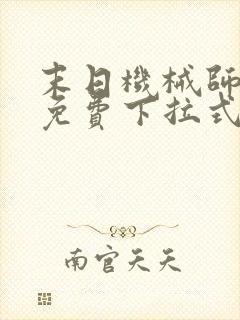 末日機械師
免費下拉式
南宮天天